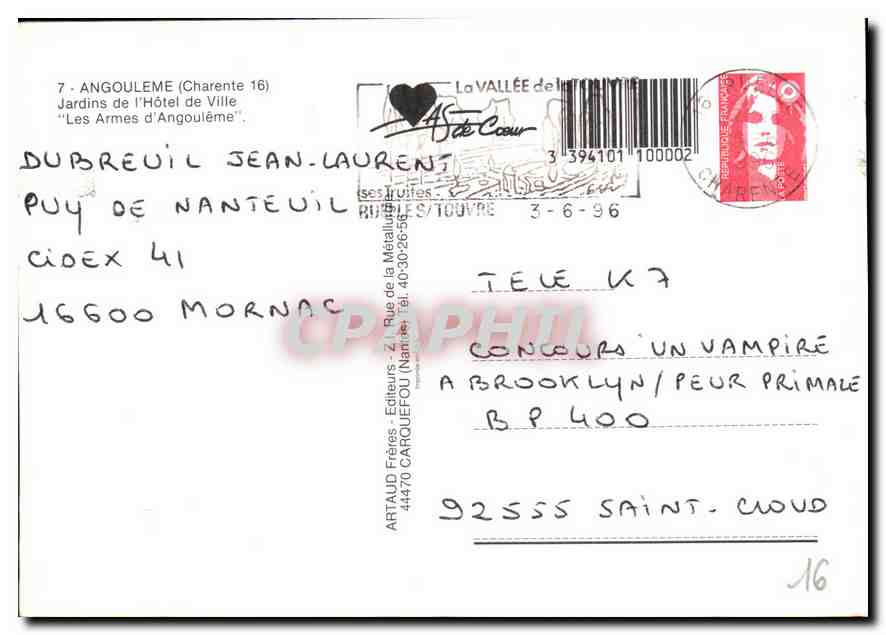 7 - ANGOULEME (Charente 16)
Jardins de l'Hôtel de Ville
"Les Armes d'Angoulême".
DUBREUIL JEAN-LAURENT
PUY DE NANTEUIL
CIDEX 41
16600 MORNAC
La VALLÉE de la TOUVRE
AS de Cœur
ses Truites
RUELLES/TOUVRE 3-6-96
3 394101 100002
REPUBLIQUE FRANÇAISE
LA POSTE
CHARENTE
ARTAUD Frères - Editeurs - Z.I. Rue de la Métallurgie
44470 CARQUEFOU (Nantes) Tél. 40-30-26-56
CPAPHIL
TELE K7
CONCOURS UN VAMPIRE
A BROOKLYN/PEUR PRIMALE
BP 400
92555 SAINT-CLOUD
16